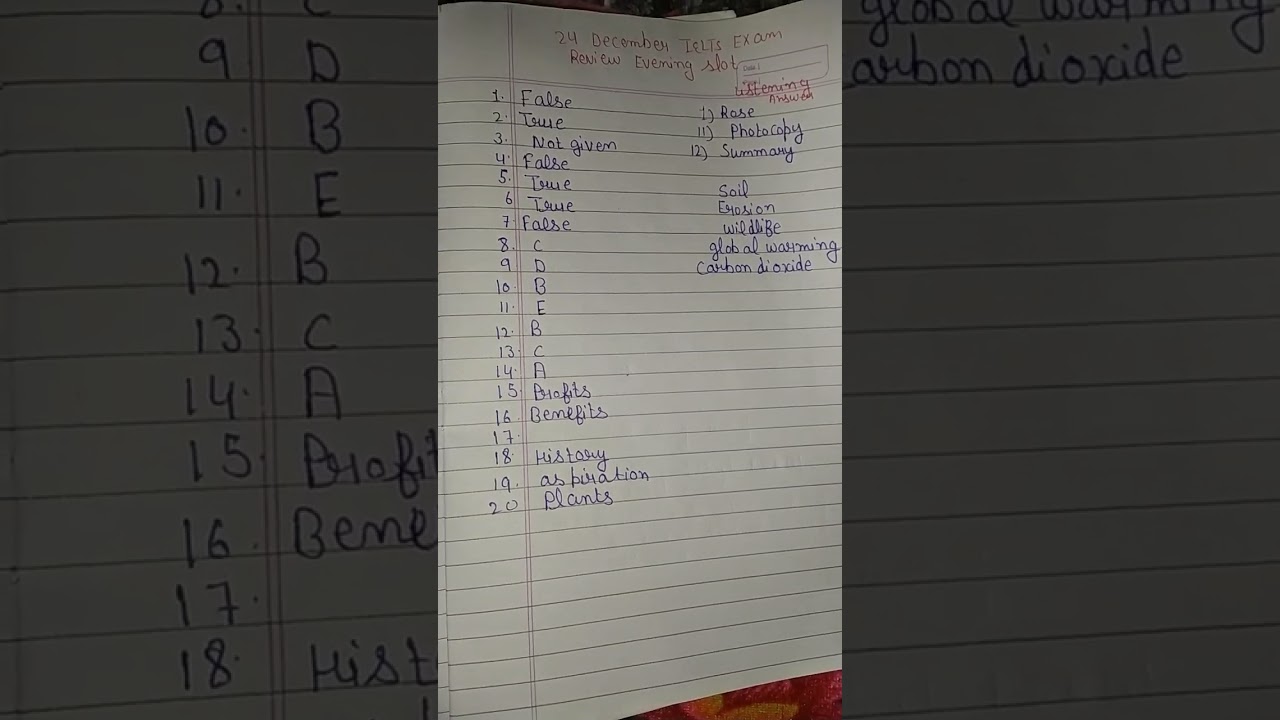 24 December IELTS Exam
Review Evening slot
Date:
Listening
Answer
1. False
2. True
3. Not given
4. False
5. True
6 True
7 False
8. C
9 D
10. B
11. E
12. B
13. C
14. A
15. Profits
16. Benefits
17.
18 History
19. aspiration
20 Plants
1) Rose
11) Photocopy
12) Summary
Soil
Erosion
wildlife
global warming
carbon dioxide
C
9 D
10. B
11. E
12. B
13. C
14. A
15.
16.
17.
18.
global warming
carbon dioxide